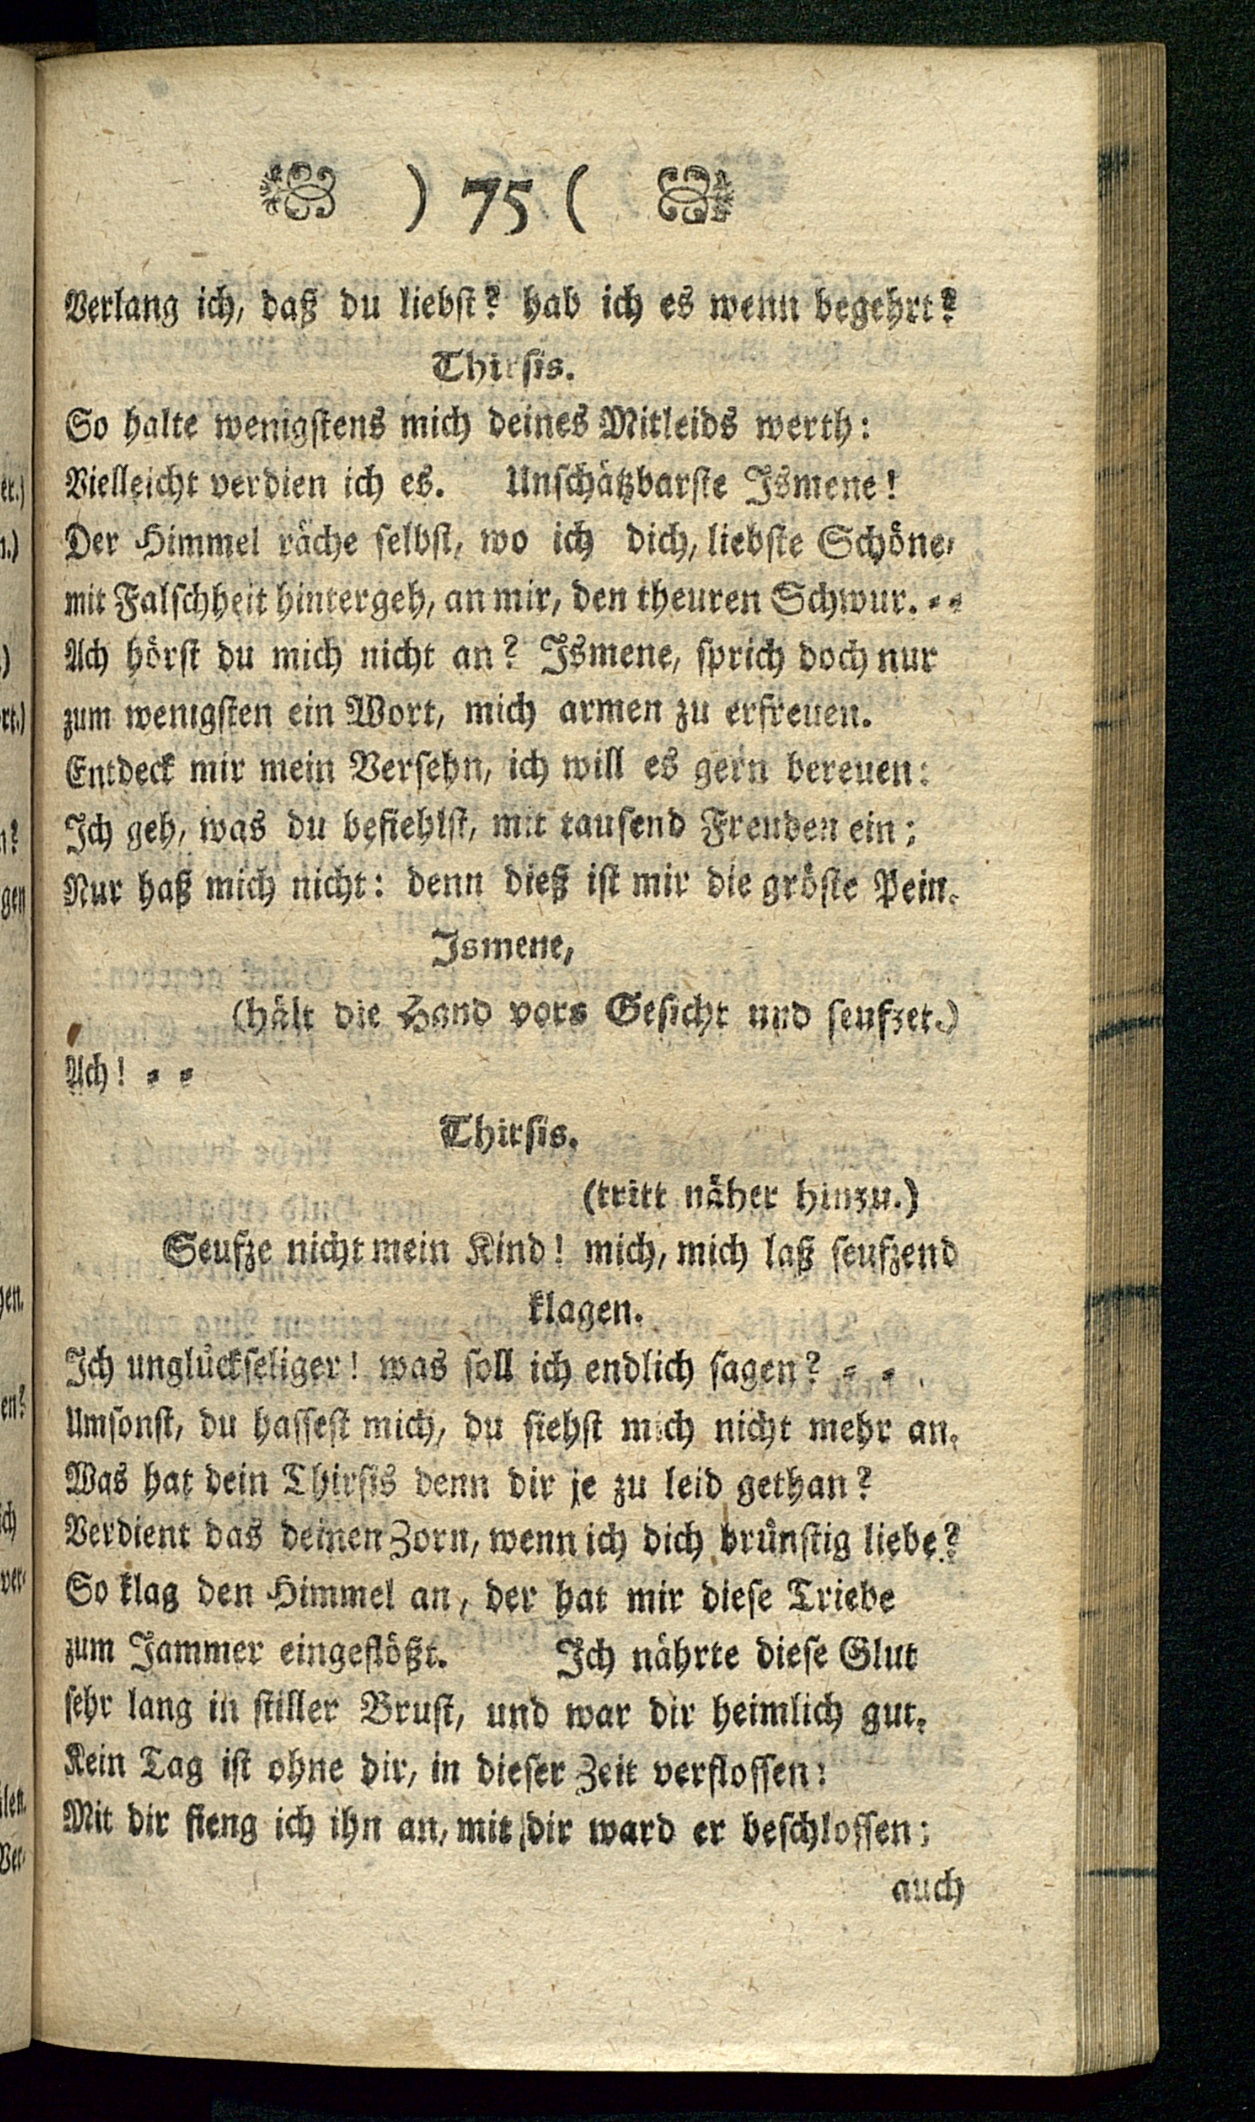 ) 75 (
Verlang ich, daß du liebst? hab ich es wenn begehrt?
Thirsis.
So halte wenigstens mich deines Mitleids werth:
Vielleicht verdien ich es. Unschätzbarste Ismene!
Der Himmel räche selbst, wo ich dich, liebste Schöne,
mit Falschheit hintergeh, an mir, den theuren Schwur. - -
Ach hörst du mich nicht an? Ismene, sprich doch nur
zum wenigsten ein Wort, mich armen zu erfreuen.
Entdeck mir mein Versehn, ich will es gern bereuen:
Ich geh, was du befiehlst, mit tausend Freuden ein;
Nur haß mich nicht: denn dieß ist mir die gröste Pein.
Ismene,
(hält die Hand vors Gesicht und seufzet.)
Ach! - -
Thirsis.
(tritt näher hinzu.)
Seufze nicht mein Kind! mich, mich laß seufzend
klagen.
Ich unglückseliger! was soll ich endlich sagen? - -
Umsonst, du hassest mich, du siehst mich nicht mehr an.
Was hat dein Thirsis denn dir je zu leid gethan?
Verdient das deinen Zorn, wenn ich dich brünstig liebe?
So klag den Himmel an, der hat mir diese Triebe
zum Jammer eingeflößt. Ich nährte diese Glut
sehr lang in stiller Brust, und war dir heimlich gut.
Kein Tag ist ohne dir, in dieser Zeit verflossen:
Mit dir fieng ich ihn an, mit dir ward er beschlossen;
auch